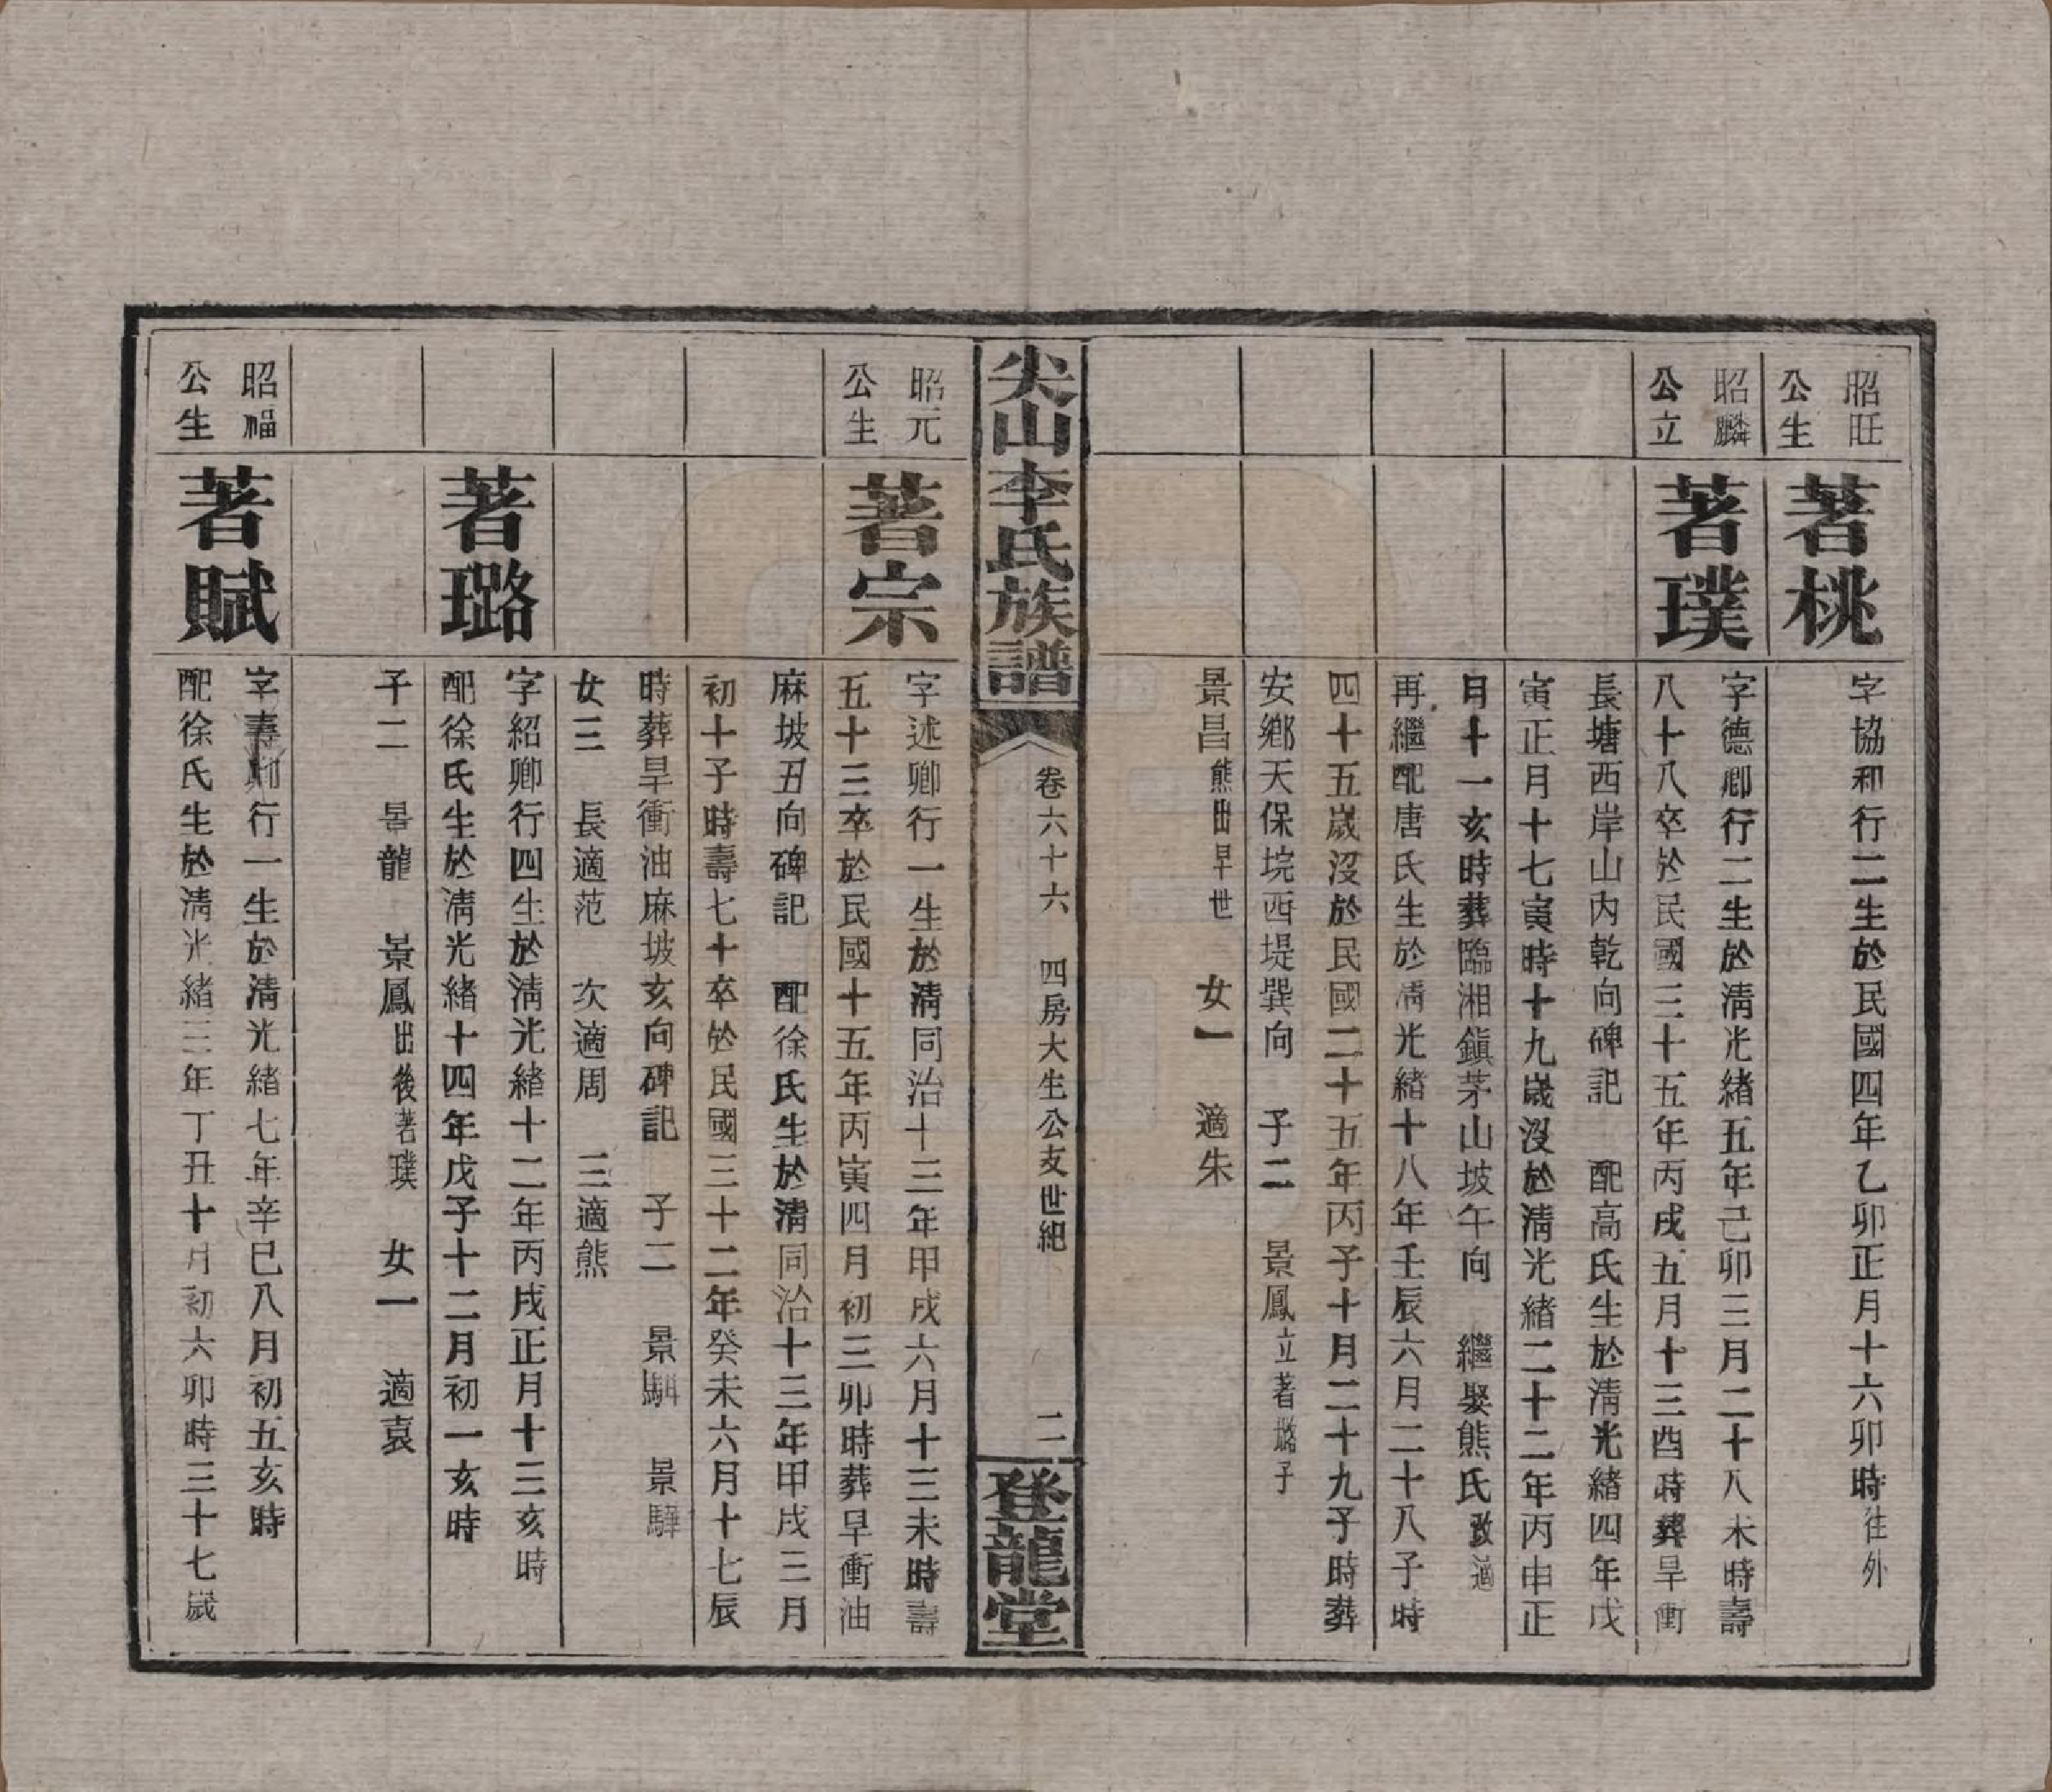 昭旺
公生
著桃
字協和行二生於民國四年乙卯正月十六卯時往外
昭麟
公立
著璞
字德卿行二生於清光緒五年己卯三月二十八未時壽
八十八卒於民國三十五年丙戌五月十三酉時葬旱衝
長塘西岸山內乾向碑記　配高氏生於清光緒四年戊
寅正月十七寅時十九歲沒於清光緒二十二年丙申正
月十一亥時葬臨湘鎮茅山坡午向　繼娶熊氏改適
再繼配唐氏生於清光緒十八年壬辰六月二十八子時
四十五歲沒於民國二十五年丙子十月二十九子時葬
安鄉天保垸西堤巽向　子二　景鳳立著璐子
景昌熊出早世　女一　適朱
尖山李氏族譜
卷六十六　四房大生公支世紀
二
登龍堂
昭元
公生
著宗
字述卿行一生於清同治十三年甲戌六月十三未時壽
五十三卒於民國十五年丙寅四月初三卯時葬旱衝油
麻坡丑向碑記　配徐氏生於清同治十三年甲戌三月
初十子時壽七十卒於民國三十二年癸未六月十七辰
時葬旱衝油麻坡亥向碑記　子二　景騆　景驊
女三　長適范　次適周　三適熊
著璐
字紹卿行四生於清光緒十二年丙戌正月十三亥時
配徐氏生於清光緒十四年戊子十二月初一亥時
子二　景龍　景鳳出後著璞　女一　適袁
昭福
公生
著賦
字壽卿行一生於清光緒七年辛巳八月初五亥時
配徐氏生於清光緒三年丁丑十月初六卯時三十七歲